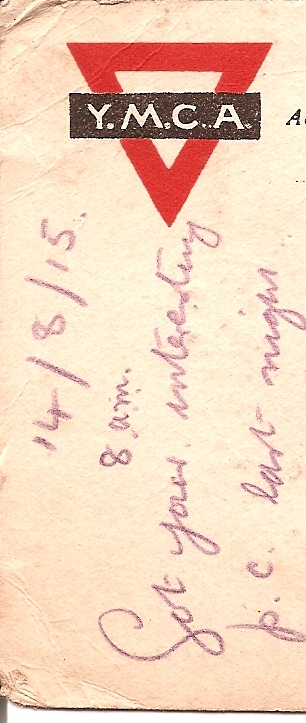 Y.M.C.A.
14/8/15.
8 a.m.
Got your interesting
p.c. last